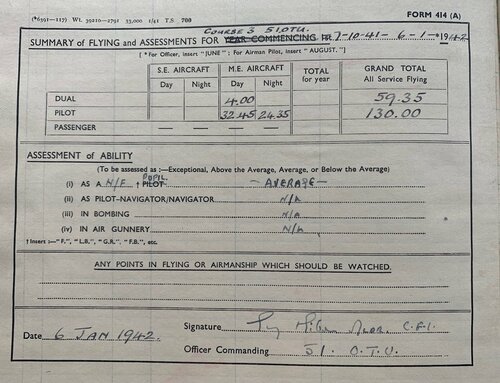 (*6391—117) Wt. 39210—2791 33,000 1/41 T.S. 700
FORM 414 (A)
COURSE 3 51 OTU.
SUMMARY of FLYING and ASSESSMENTS FOR YEAR COMMENCING 7-10-41- 6-1-1942
[* For Officer, insert "JUNE"; For Airman Pilot, insert "AUGUST."]
S.E. AIRCRAFT M.E. AIRCRAFT TOTAL for year GRAND TOTAL All Service Flying
Day Night Day Night
DUAL 4.00 59.35
PILOT 32.45 24.35 130.00
PASSENGER — — — —
ASSESSMENT of ABILITY
(To be assessed as:—Exceptional, Above the Average, Average, or Below the Average)
(i) AS A N/F † PILOT PUPIL - AVERAGE -
(ii) AS PILOT-NAVIGATOR/NAVIGATOR N/A
(iii) IN BOMBING N/A
(iv) IN AIR GUNNERY N/A
† Insert :—"F.", "L.B.", "G.R.", "F.B.", etc.
ANY POINTS IN FLYING OR AIRMANSHIP WHICH SHOULD BE WATCHED.
Date 6 JAN 1942. Signature C.F.I.
Officer Commanding 51. O.T.U.